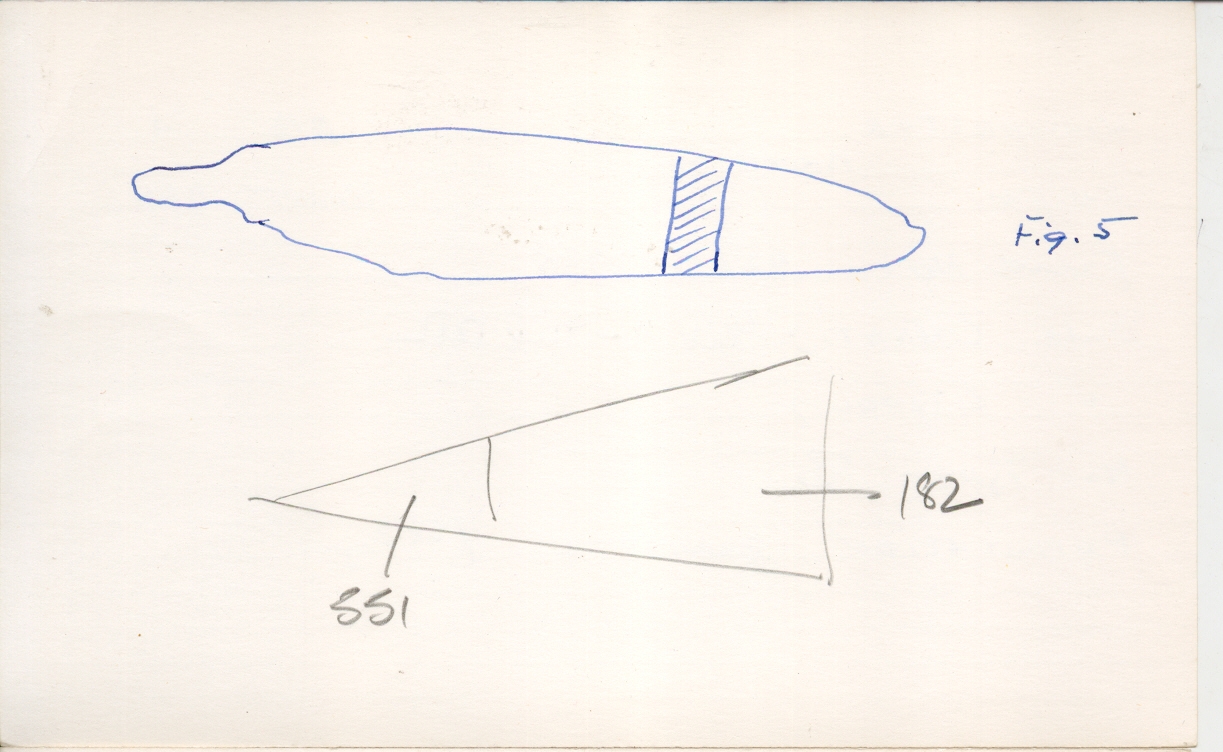 Fig. 5
182
551